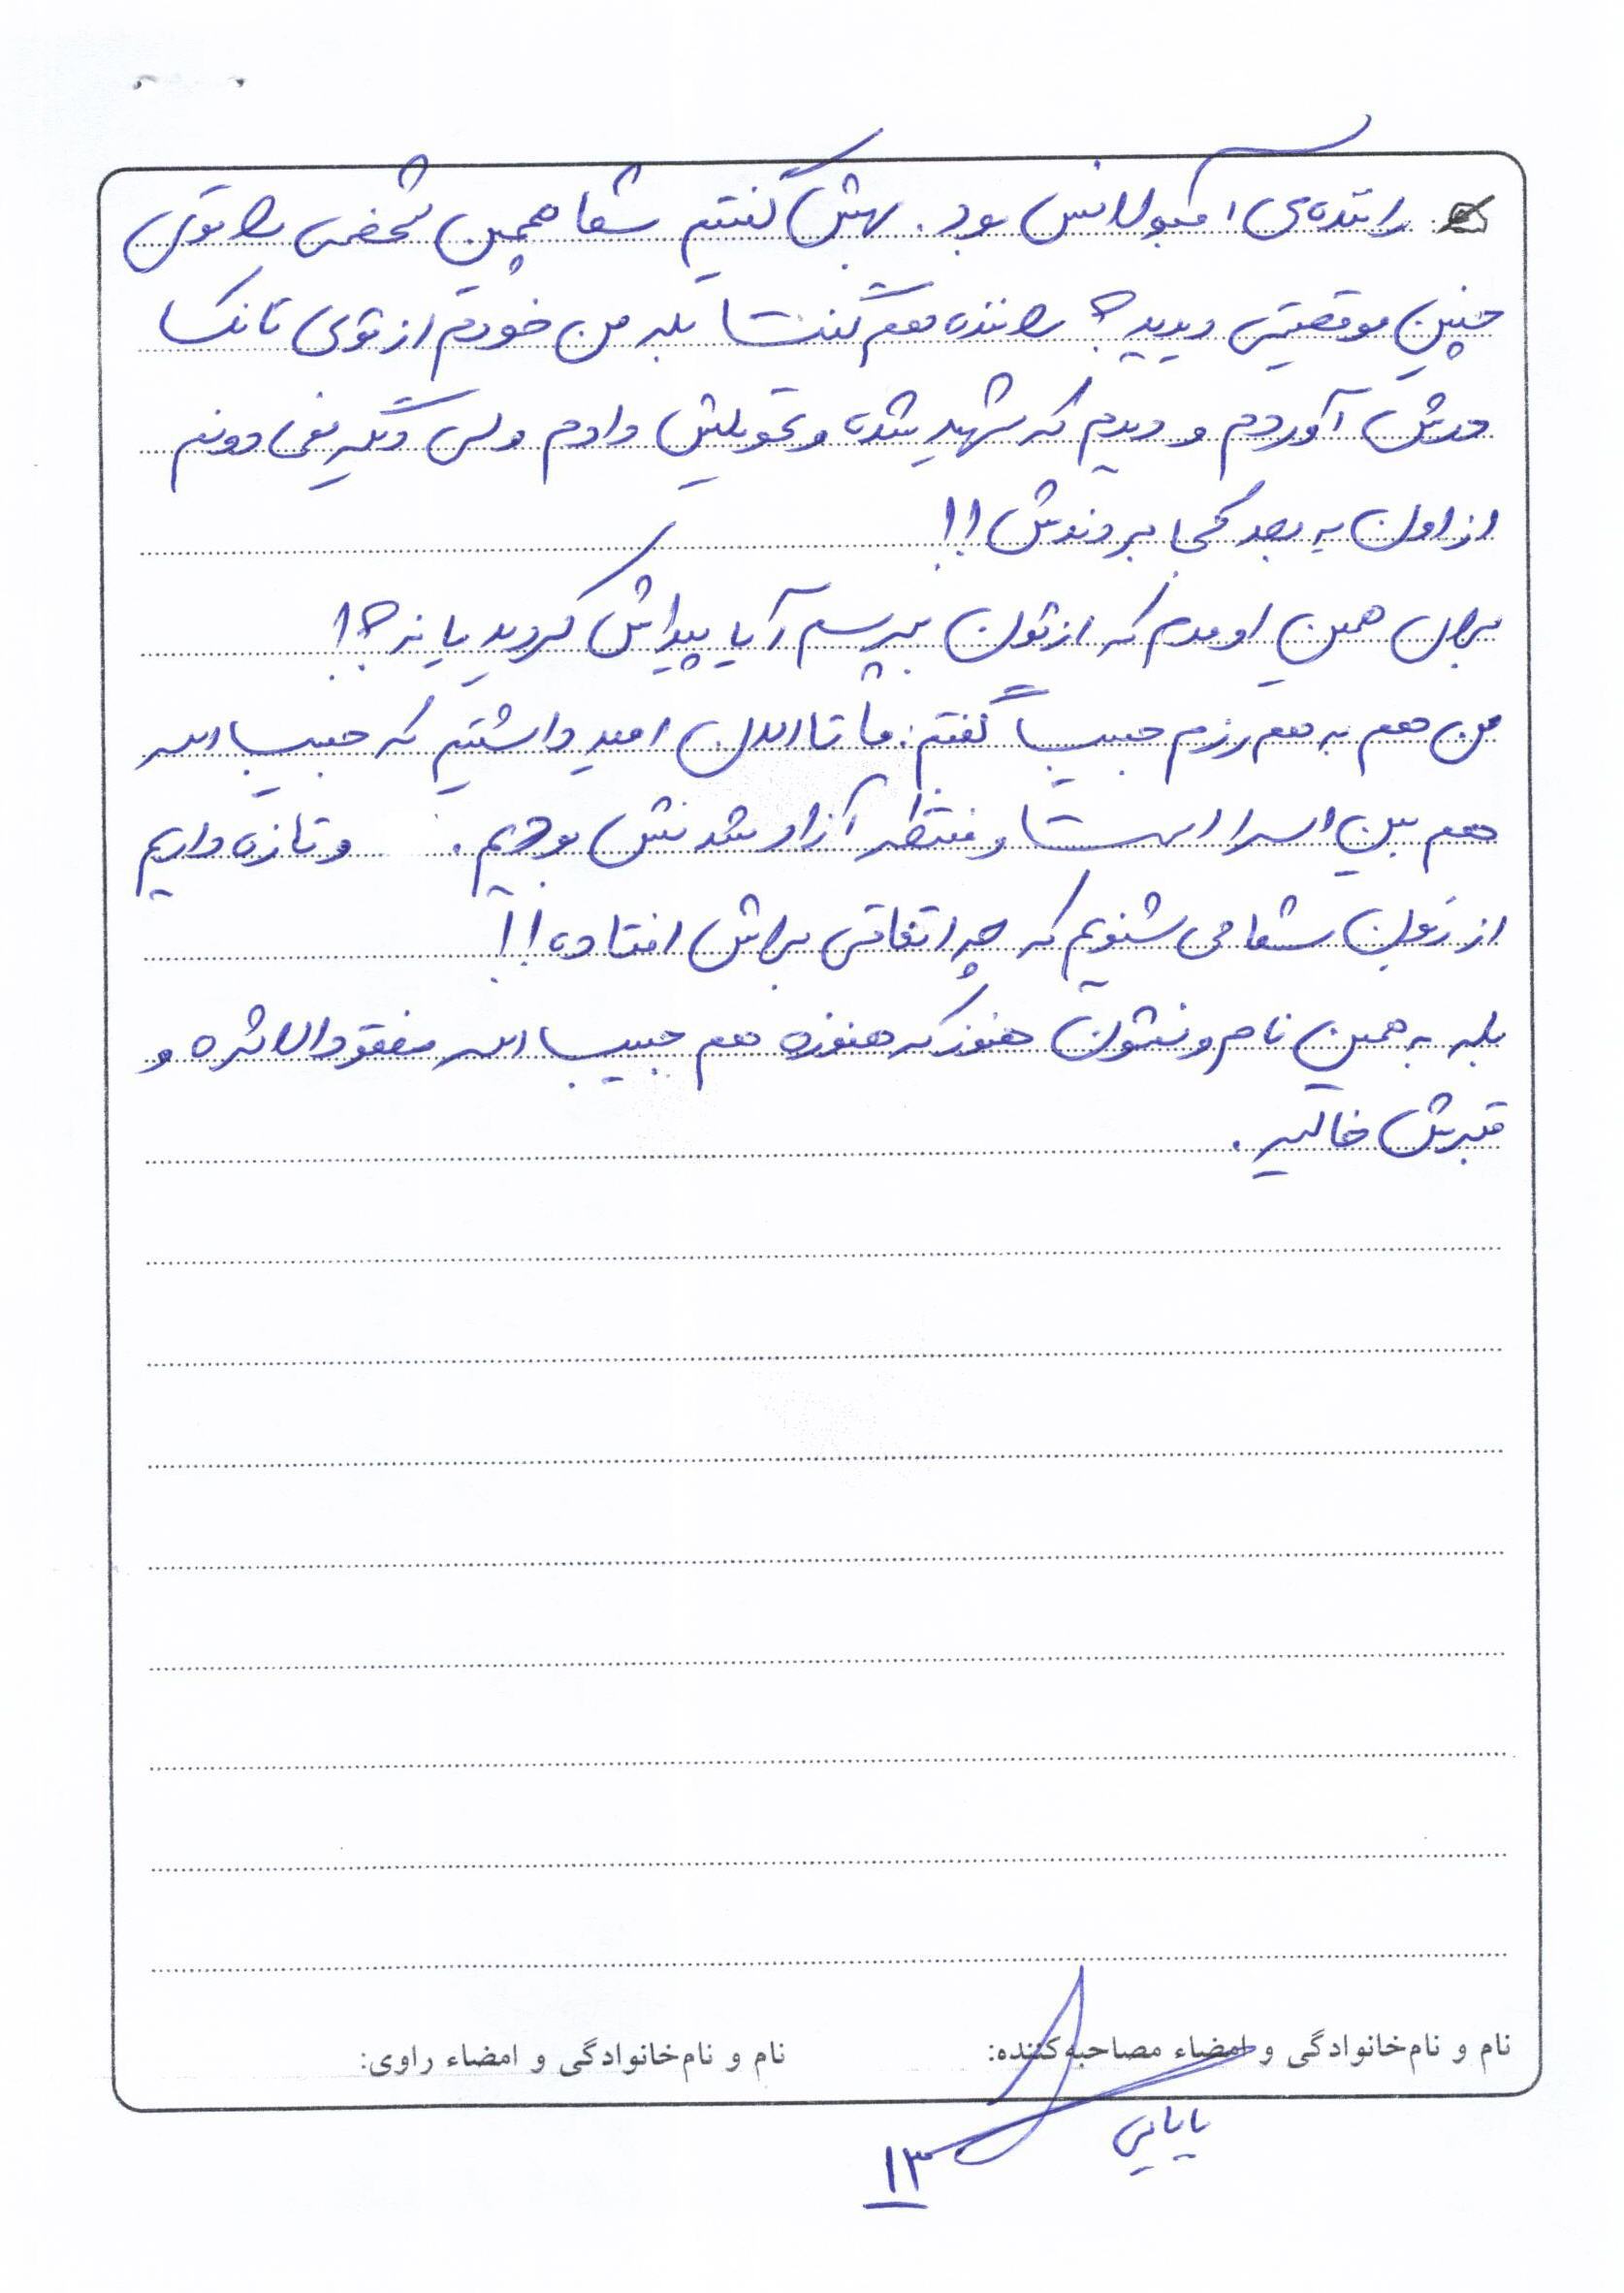 راننده‌ی آمبولانس بود. بهش گفتیم شما همچین شخصی را توی
چنین موقعیتی دیدید؟ راننده هم گفت بله من خودم از توی تانک
درش آوردم و دیدم که شهید شده و تحویلش دادم ولی دیگه نمی دونم
از اون به بعد کجا بردندش!!
برای همین اومدم که ازتون بپرسم آیا پیداش کردید یا نه؟!
من هم به هم رزم حبیب گفتم: ما تا الان امید داشتیم که حبیب الله
هم بین اسرا است و منتظر آزاد شدنش بودیم. و تازه داریم
از زبون شما می شنویم که چه اتفاقی براش افتاده!!
بله به همین نام و نشون هنوز که هنوزه هم حبیب الله مفقود الاثره و
قبرش خالیه.
نام و نام‌خانوادگی و امضاء مصاحبه‌کننده:
نام و نام‌خانوادگی و امضاء راوی:
بابایی
۱۳